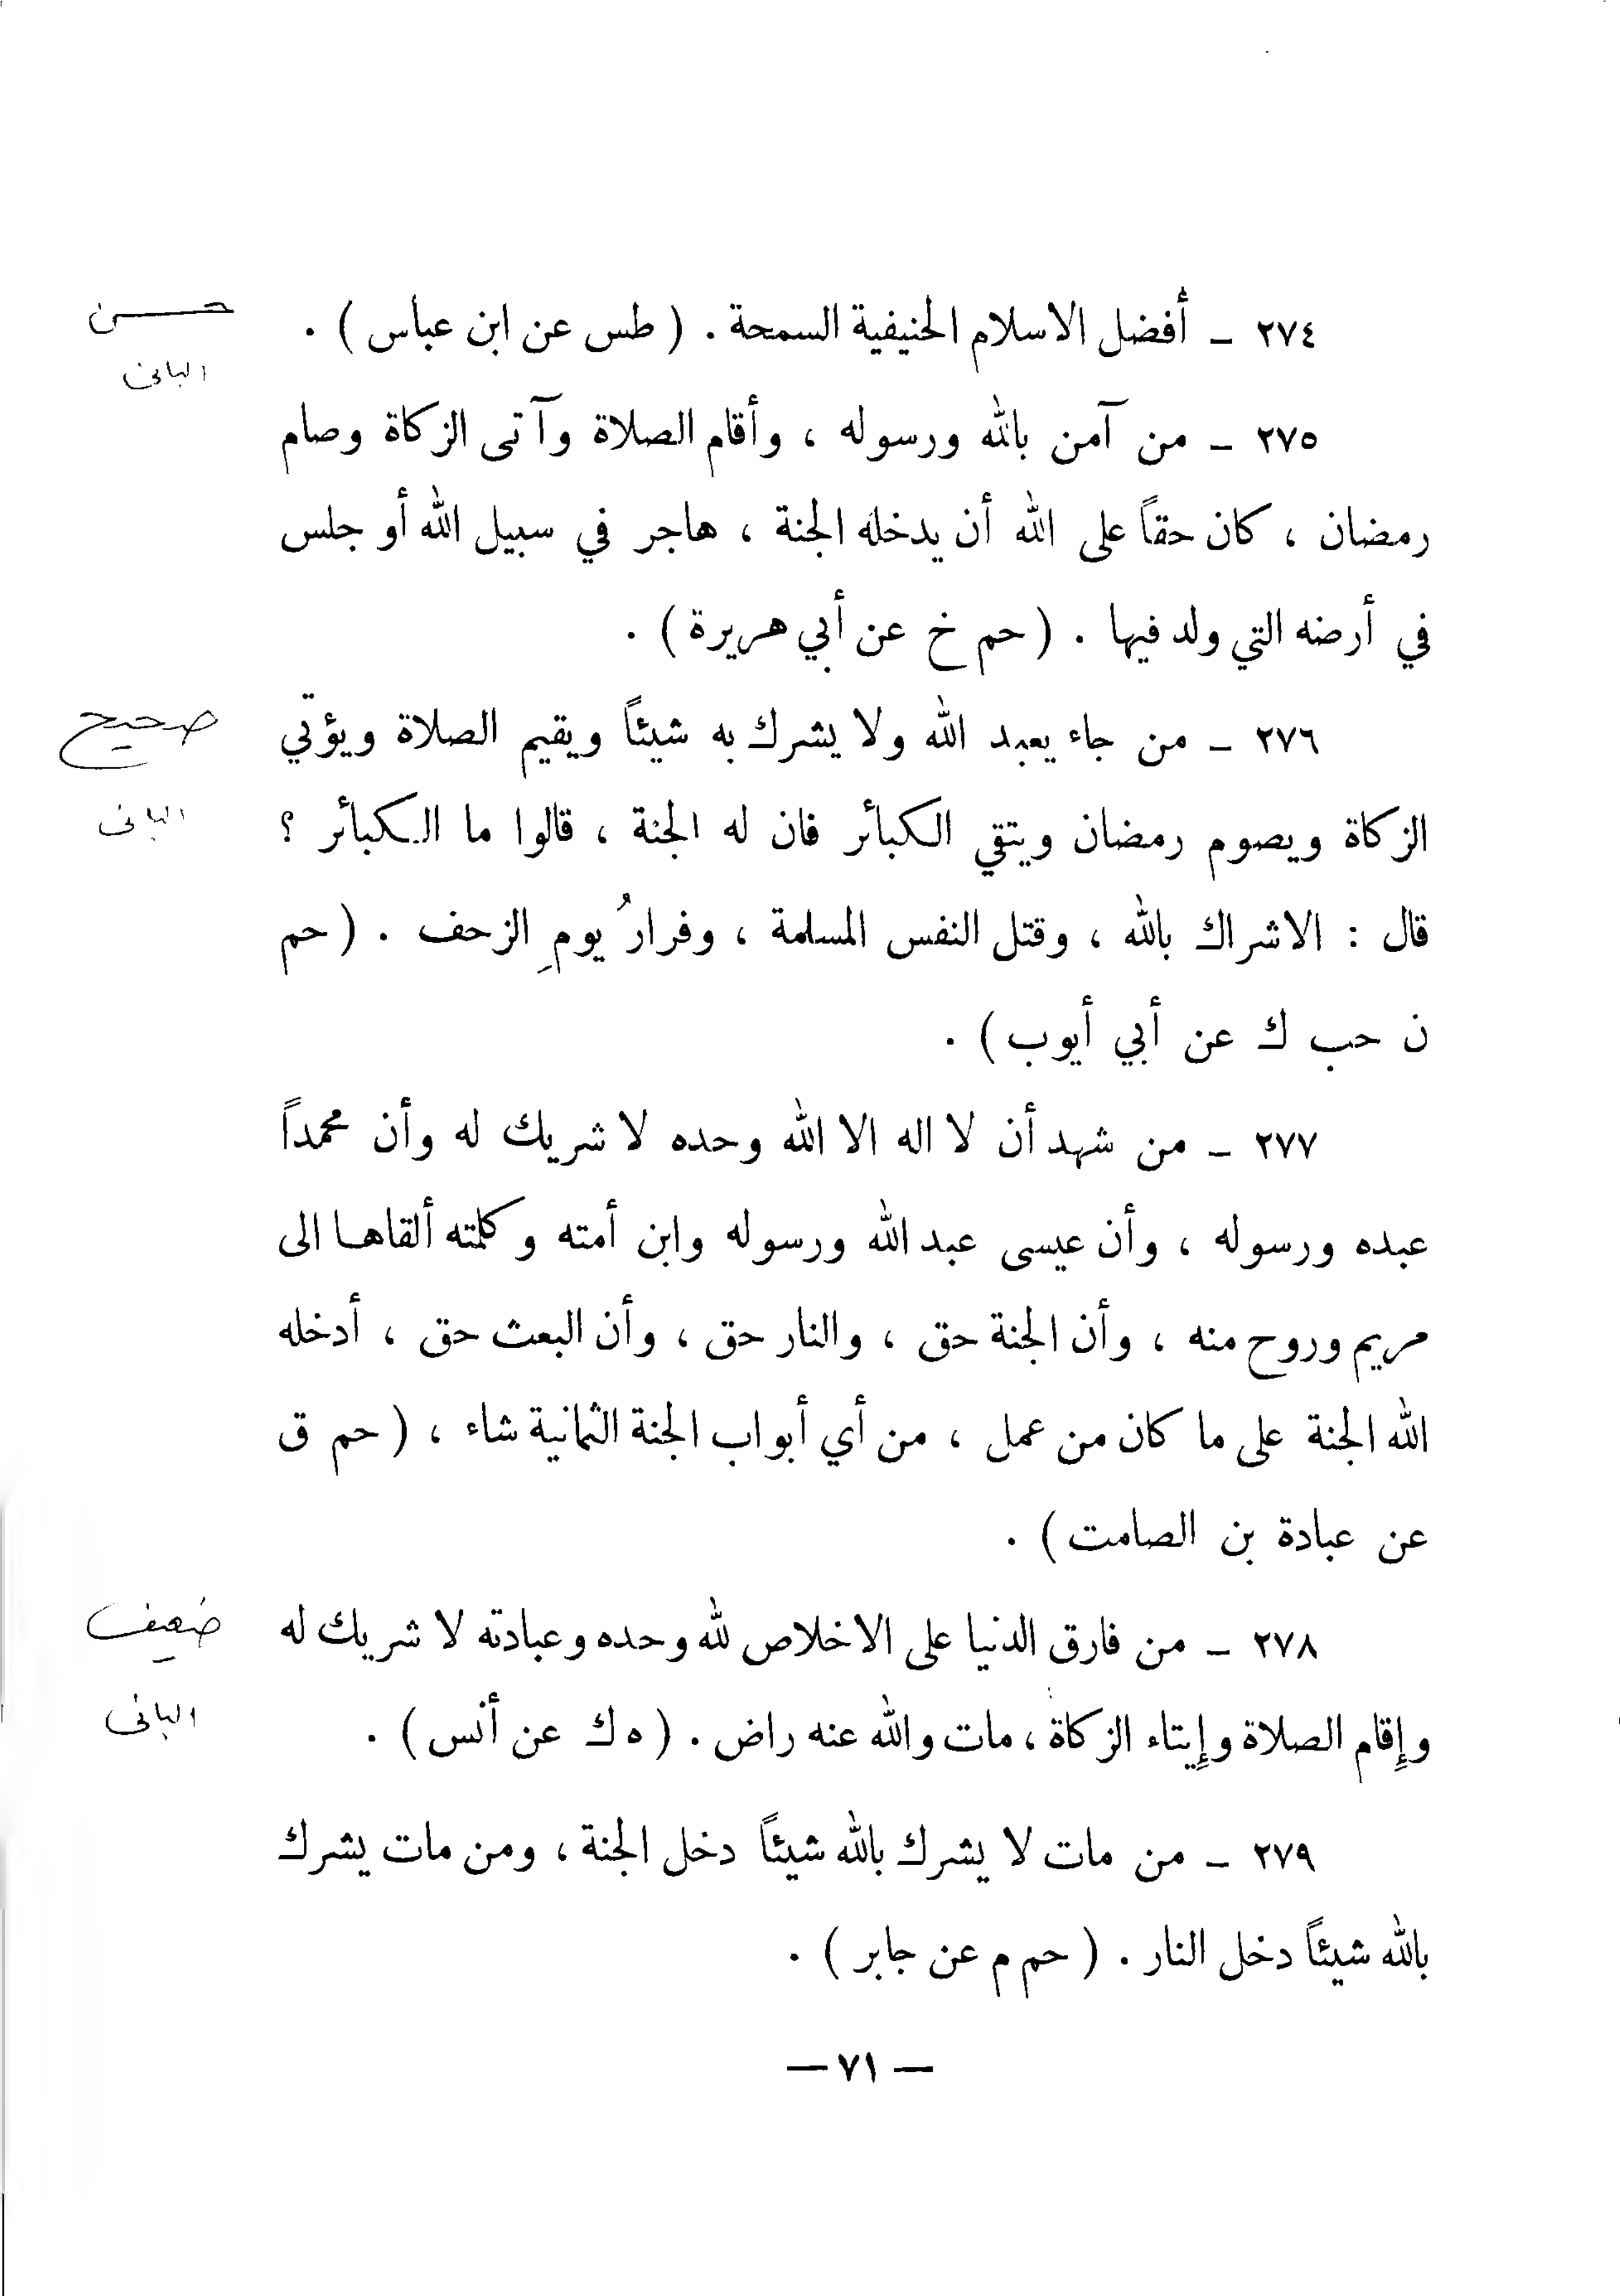 ٢٧٤ ـ أفضل الاسلام الحنيفية السمحة . ( طس عن ابن عباس ) .
حسن
البانى
٢٧٥ ـ من آمن بالله ورسوله ، وأقام الصلاة وآتى الزكاة وصام
رمضان ، كان حقاً على الله أن يدخله الجنة ، هاجر في سبيل الله أو جلس
في أرضه التي ولد فيها . ( حم خ عن أبي هريرة ) .
٢٧٦ ـ من جاء يعبد الله ولا يشرك به شيئاً ويقيم الصلاة ويؤتي
صحيح
البانى
الزكاة ويصوم رمضان ويتقي الكبائر فان له الجنة ، قالوا ما الكبائر ؟
قال : الاشراك بالله ، وقتل النفس المسلمة ، وفرارُ يومِ الزحف . ( حم
ن حب ك عن أبي أيوب ) .
٢٧٧ ـ من شهد أن لا اله الا الله وحده لا شريك له وأن محمداً
عبده ورسوله ، وأن عيسى عبد الله ورسوله وابن أمته وكلمته ألقاها الى
مريم وروح منه ، وأن الجنة حق ، والنار حق ، وأن البعث حق ، أدخله
الله الجنة على ما كان من عمل ، من أي أبواب الجنة الثمانية شاء ، ( حم ق
عن عبادة بن الصامت ) .
٢٧٨ ـ من فارق الدنيا على الاخلاص لله وحده وعبادته لا شريك له
ضعيف
البانى
وإقام الصلاة وإيتاء الزكاة ، مات والله عنه راض . ( ه ك عن أنس ) .
٢٧٩ ـ من مات لا يشرك بالله شيئاً دخل الجنة ، ومن مات يشرك
بالله شيئاً دخل النار . ( حم م عن جابر ) .
— ٧١ —